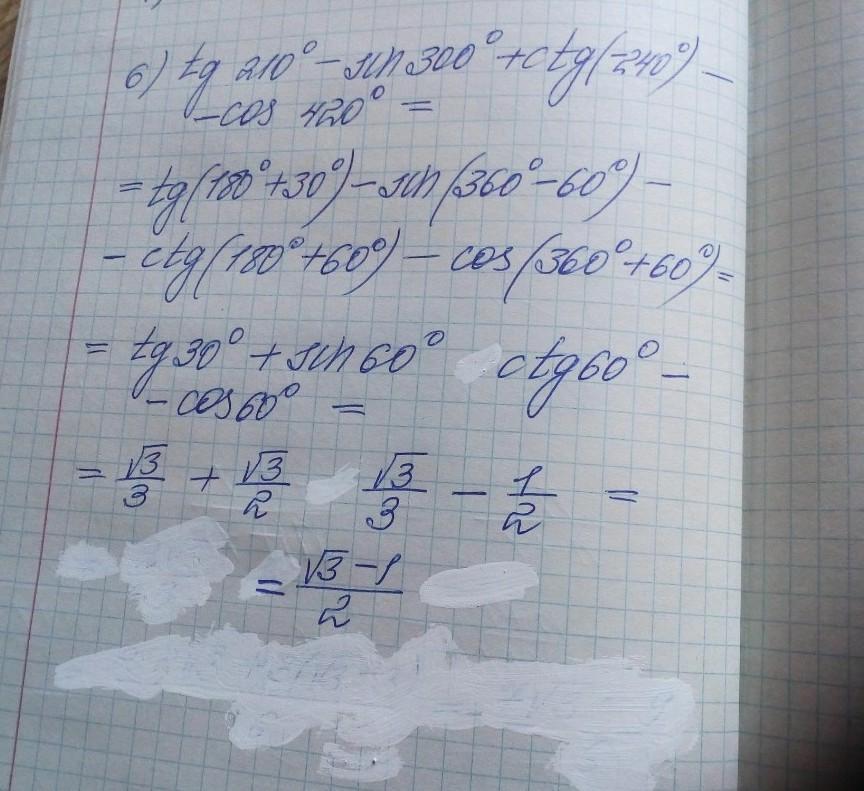 6) tg 210° - sin 300° + ctg(-240°) -
- cos 420° =
= tg(180° + 30°) - sin(360° - 60°) -
- ctg(180° + 60°) - cos(360° + 60°) =
= tg 30° + sin 60° ctg 60° -
- cos 60° =
= √3/3 + √3/2 √3/3 - 1/2 =
= (√3 - 1)/2